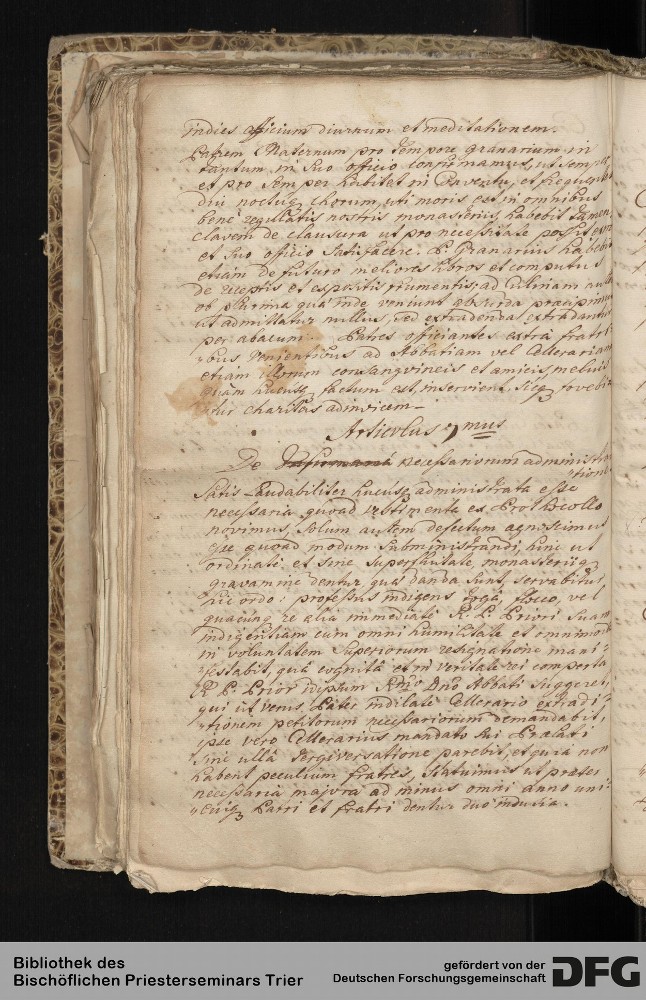 indies officium diurnum et meditationem.
Patrem Maternum pro tempore granarium in
tantum in suo officio confirmamus, ut semper
et pro semper habitet in Conventu, et frequentet
diu noctuq chorum, uti moris est in omnibus
bene regulatis nostris monasteriis, habebit tamen
clavem de clausura ut pro necessitate possit
et suo officio satisfacere. P. Granarius habebit
etiam de futuro meliores libros et computus
de receptis et expositis frumentis, ad
ob plurima quae inde veniunt absurda praecipimus
ut admittatur nullus, sed extradenda extradantur
per abacum. Patres officiantes extra fratri-
-bus venientibus ad Abbatiam vel Cellerariam
etiam illorum consangvineis et amicis, melius
quam hucusq factum est, inservient. sicq fovebi-
-tur charitas adinvicem.
Articulus 7mus
De necessariorum administra-
-tione
Satis laudabiliter hucusq administrata esse
necessaria quoad vestimenta ex Prothocollo
novimus, solum autem defectum agnoscimus
quoad modum subministrandi, hinc ut
ordinate et sine superfluitate, monasteriiq
gravamine dentur quae danda sunt, servabitur
hic ordo: professus indigens toga, flocco, vel
quacunq re alia immediate R. P. Priori suam
indigentiam cum omni humilitate et omnimoda
in voluntatem Superiorum resignatione mani-
-festabit, qua cognita et in veritate rei comperta
R. P. Prior ipsum Rdmo Dno Abbati suggeret,
qui ut verus Pater indilate Cellerario extradi-
-tionem petitorum necessariorum demandabit,
ipse vero Cellerarius mandato sui Praelati
sine ulla tergiversatione parebit, et quia non
habent peculium fratres, statuimus ut praeter
necessaria majora ad minus omni anno uni-
-cuiq Patri et fratri dentur duo indusia.
Bibliothek des
Bischöflichen Priesterseminars Trier
gefördert von der
Deutschen Forschungsgemeinschaft
DFG